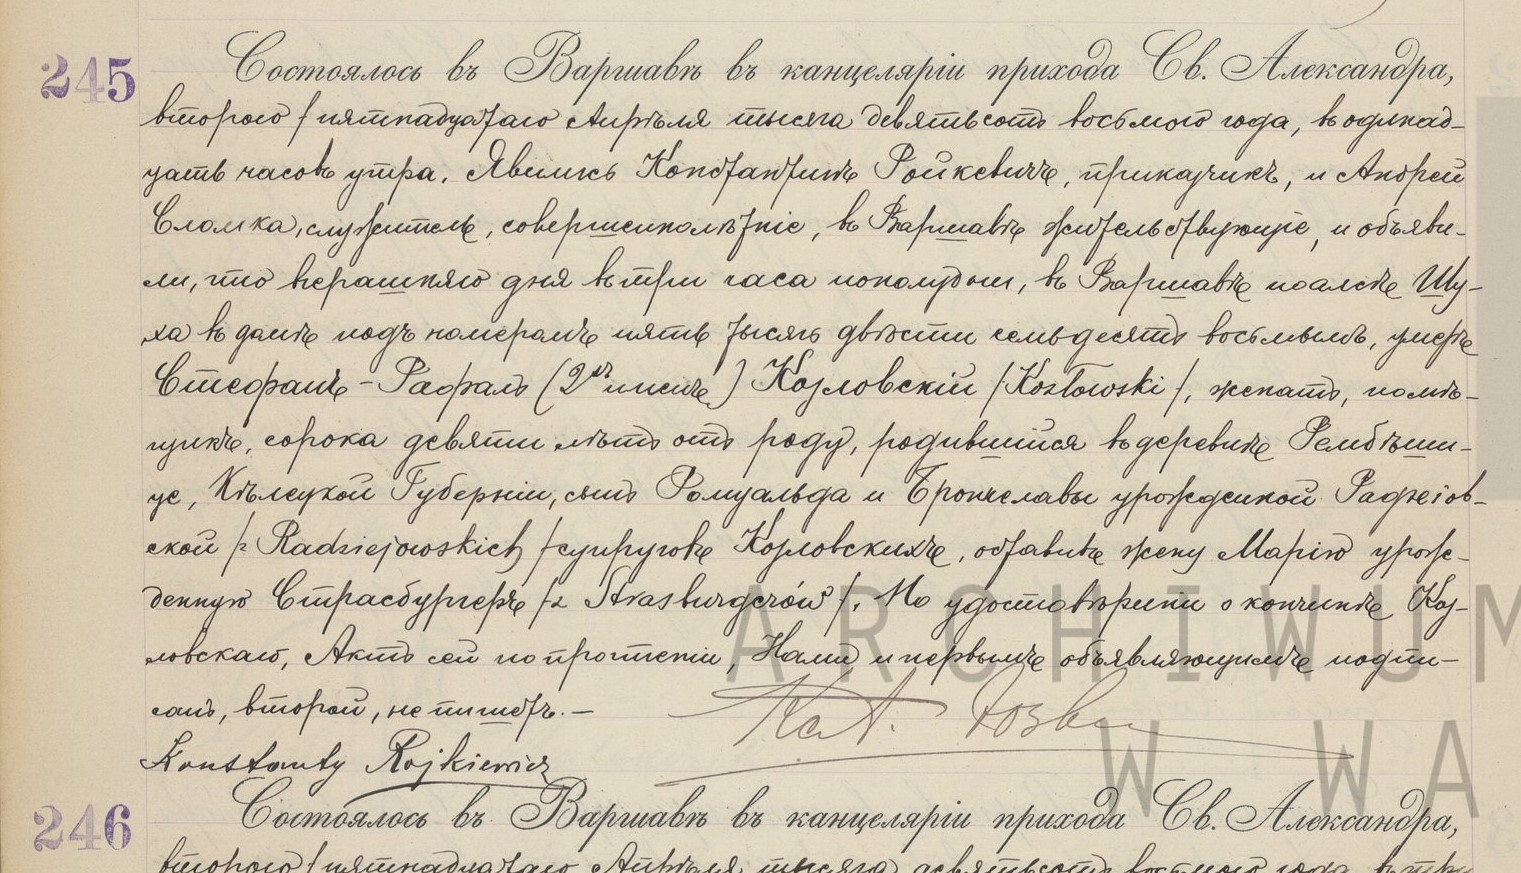 245
Состоялось въ Варшавѣ въ канцеляріи прихода Св. Александра,
второго /пятнадцатаго Апрѣля тысяча девятьсотъ восьмого года, въ одинад-
цать часовъ утра. Явились Константинъ Ройкевичъ, приказчикъ, и Андрей
Сломка, служитель, совершеннолѣтніе, въ Варшавѣ жительствующіе, и объяви-
ли, что вчерашняго дня въ три часа пополудни, въ Варшавѣ по аллеѣ Шу-
ха въ домѣ подъ номеромъ пять тысячъ двѣсти семьдесятъ восьмымъ, умеръ
Стефанъ-Рафалъ (2хъ именъ) Козловскій /Kozłowski/, женатъ, помѣ-
щикъ, сорока девяти лѣтъ отъ роду, родившійся въ деревнѣ Рембѣши-
це, Кѣлецкой Губерніи, сынъ Ромуальда и Брониславы урожденной Радзеіов-
ской /z Radziejowskich/ супруговъ Козловскихъ, оставивъ жену Марію урож-
денную Страсбургеръ /z Strasburgerów/. По удостовѣреніи о кончинѣ Коз-
ловскаго, Актъ сей по прочтеніи, Нами и первымъ объявляющимъ подпи-
санъ, второй, не пишетъ.-
Konstanty Rojkiewicz
ARCHIWUM
W WA
246
Состоялось въ Варшавѣ въ канцеляріи прихода Св. Александра,
второго /пятнадцатаго Апрѣля тысяча девятьсотъ восьмого года, въ три